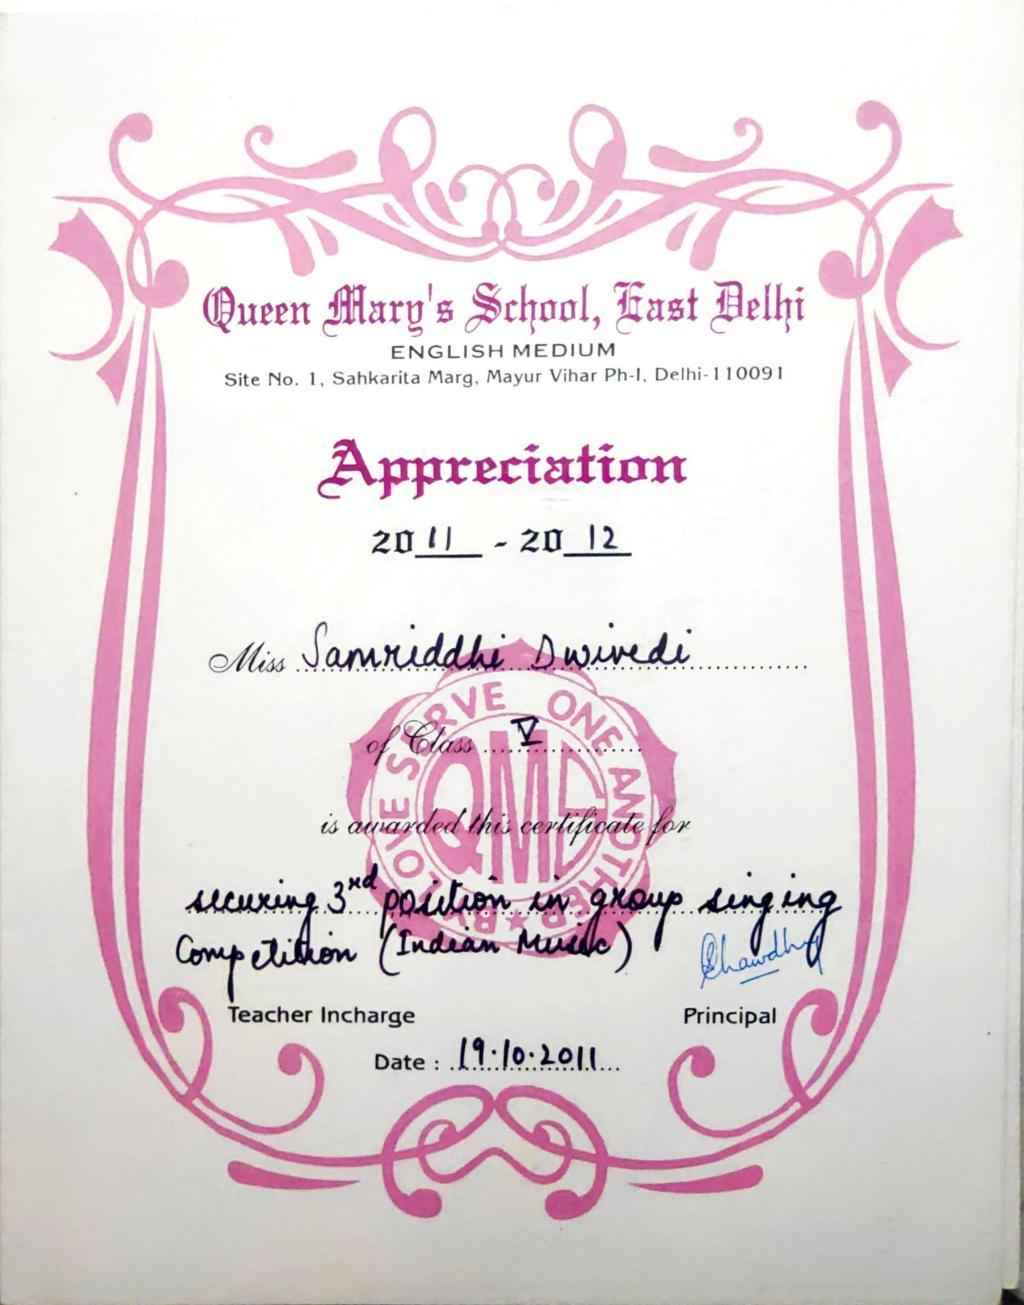 Queen Mary's School, East Delhi
ENGLISH MEDIUM
Site No. 1, Sahkarita Marg, Mayur Vihar Ph-I, Delhi-110091
Appreciation
2011 - 2012
Miss Samriddhi Dwivedi
of Class V
BY LOVE SERVE ONE ANOTHER
QMS
is awarded this certificate for
securing 3rd position in group singing
Competition (Indian Music)
Teacher Incharge Principal
Date : 19.10.2011